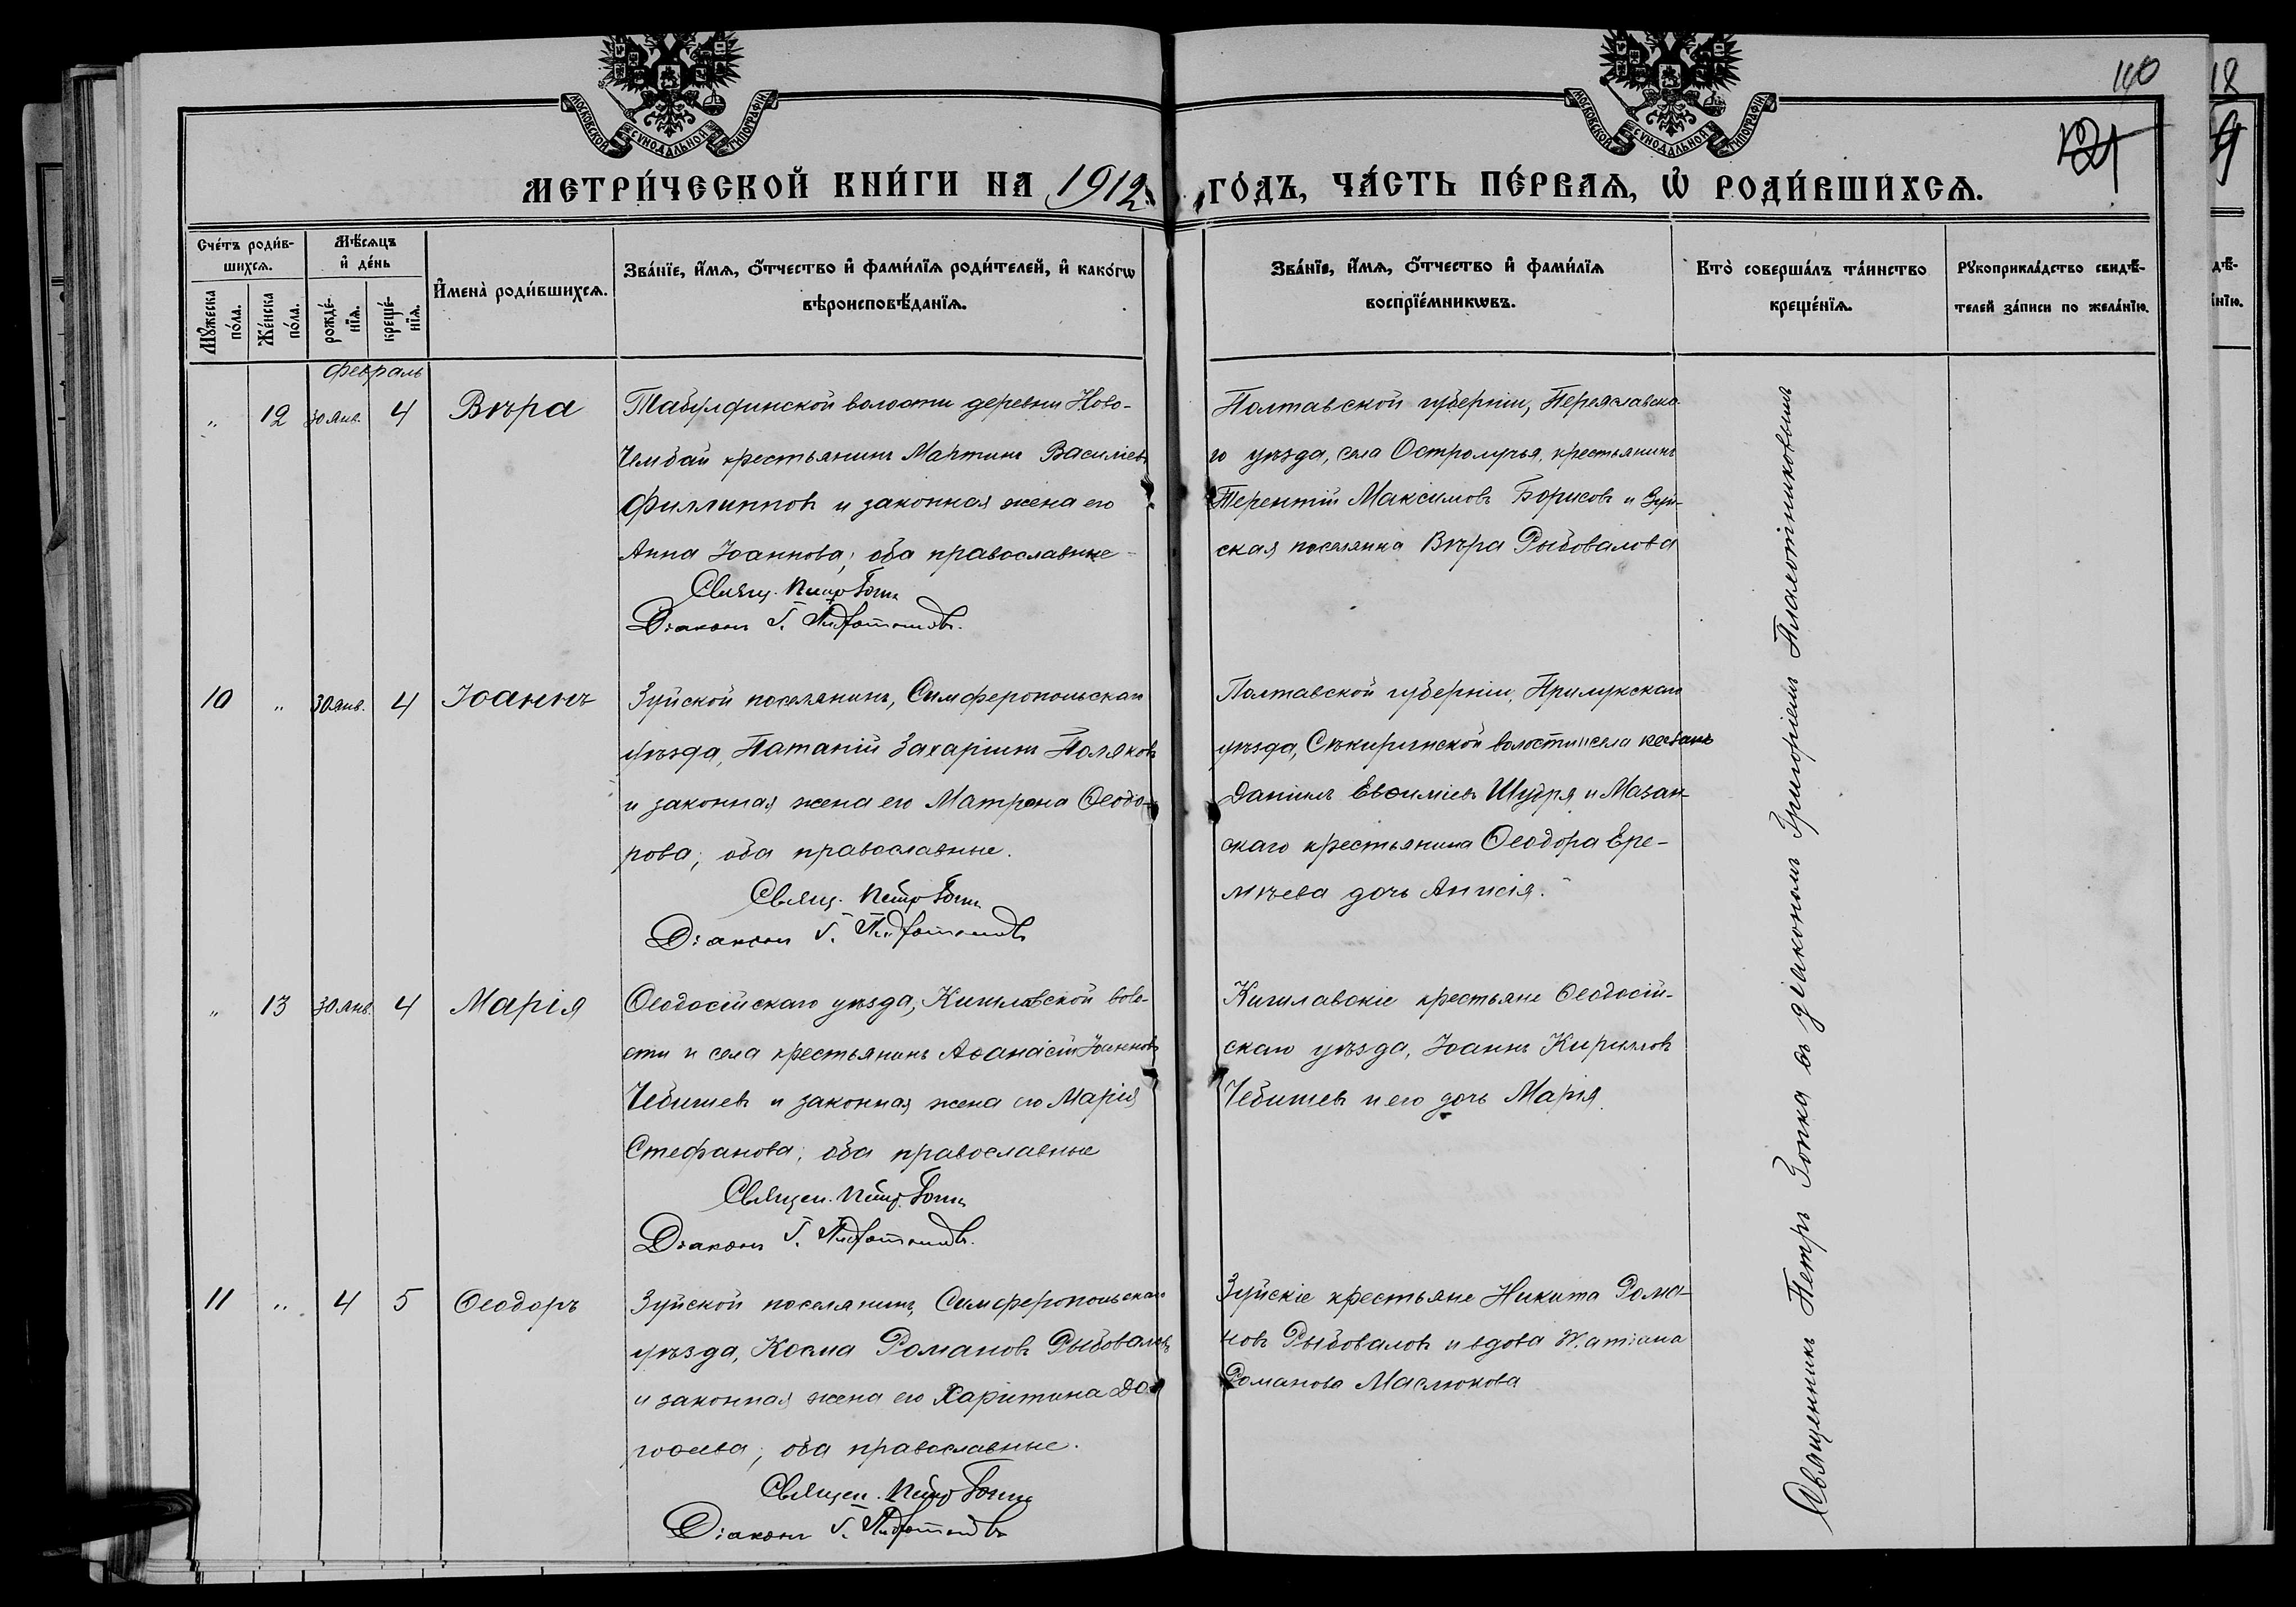 МОСКОВСКОЙ СѴНОДАЛЬНОЙ ТИПОГРАФІИ
МОСКОВСКОЙ СѴНОДАЛЬНОЙ ТИПОГРАФІИ
140
121
МЕТРИ́ЧЕСКОЙ КНИ́ГИ НА 1912 ГО́ДЪ, ЧА́СТЬ ПЕ́РВАѦ, Ѡ҆ РОДИ́ВШИХСѦ.
Сче́тъ роди́в-
шихсѧ.
Мꙋ́жеска по́ла.
Же́нска по́ла.
Мѣ́сѧцъ
и҆ де́нь
рожде́-
нїѧ.
креще́-
нїѧ.
И҆мена̀ роди́вшихсѧ.
Зва́нїе, и҆́мѧ, ѻ҆́тчество и҆ фами́лїѧ роди́телей, и҆ како́гѡ
вѣроисповѣ́данїѧ.
Зва́нїе, и҆́мѧ, ѻ҆́тчество и҆ фами́лїѧ
воспрїе́мникѡвъ.
Кто̀ соверша́лъ та́инство
креще́нїѧ.
Рꙋкоприкла́дство свидѣ́-
телей за́писи по жела́нїю.
Февраль
" 12 30 Янв. 4 Вѣра
Табулдинской волости деревни Ново-
Чембай крестьянинъ Мартинъ Василіевъ
Филлиповъ и законная жена его
Анна Іоаннова; оба православные
Свящ. Петръ
Діаконъ Г.
Полтавской губерніи, Переяславска-
го уѣзда, села Остролучья, крестьянинъ
Терентій Максимовъ Борисовъ и Зуй-
ская поселянка Вѣра Рыбовалова
10 " 30 янв. 4 Іоаннъ
Зуйской поселянинъ, Симферопольскаго
уѣзда, Патапій Захаріинъ Поляковъ
и законная жена его Матрона Ѳеодо-
рова; оба православные.
Свящ. Петръ
Діаконъ Г.
Полтавской губерніи, Прилукскаго
уѣзда, Сѣкиринской волости и села козакъ
Даніилъ Евѳиміевъ Шудря и Мазан-
скаго крестьянина Ѳеодора Ере-
мѣева дочь Анисія.
" 13 30 Янв. 4 Марія
Ѳеодосійскаго уѣзда, Кишлавской воло-
сти и села крестьянинъ Аѳанасій Іоанновъ
Чебишевъ и законная жена его Марія
Стефанова; оба православные
Священ. Петръ
Діаконъ Г.
Кишлавскіе крестьяне Ѳеодосій-
скаго уѣзда, Іоаннъ Кирилловъ
Чебишевъ и его дочь Марія.
11 " 4 5 Ѳеодоръ
Зуйской поселянинъ, Симферопольскаго
уѣзда, Косма Романовъ Рыбоваловъ
и законная жена его Харитина До-
роѳеева; оба православные.
Священ. Петръ
Діаконъ Г.
Зуйскіе крестьяне Никита Рома-
новъ Рыбоваловъ и вдова Татіана
Романова Маслюкова
Священникъ Петръ съ діакономъ Григоріемъ